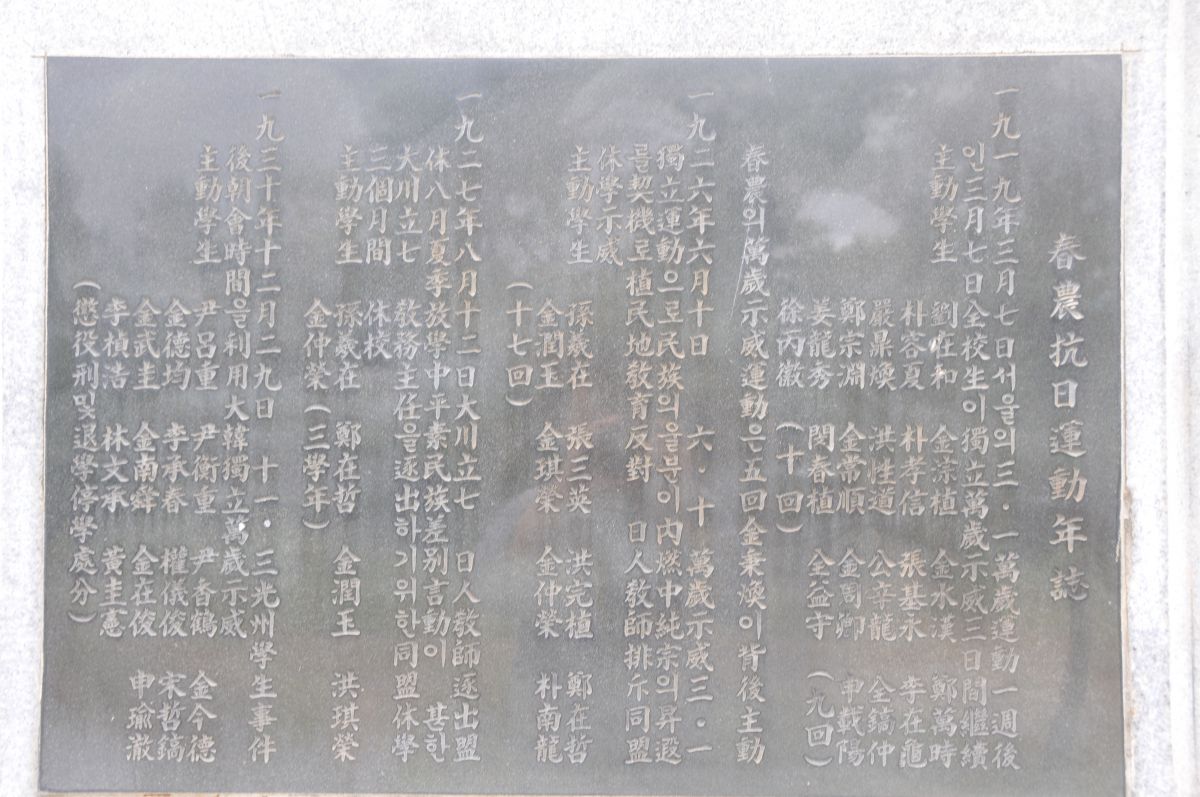 春農抗日運動年誌
一九一九年三月七日서울의三·一萬歲運動一週後
인三月七日全校生이獨立萬歲示威三日間繼續
主動學生 劉在和 金滌植 金水漢 鄭萬時
朴容夏 朴孝信 張基永 李在龜
嚴鼎煥 洪性道 公宰龍 全鎬仲
鄭宗淵 金常順 金周卿 申載陽
姜龍秀 閔春植 全益守 (九回)
徐丙徽 (十回)
春農의萬歲示威運動은五回金秉煥이背後主動
一九二六年六月十日 六·十 萬歲示威三·一
獨立運動으로民族의울분이內燃中純宗의昇遐
를契機로植民地敎育反對 日人敎師排斥同盟
休學示威
主動學生 孫羲在 張三英 洪完植 鄭在哲
金潤玉 金琪榮 金仲榮 朴南龍
(十七回)
一九二七年八月十二日大川立七 日人敎師逐出盟
休八月夏季放學中平素民族差別言動이 甚한
大川立七 敎務主任을逐出하기위한同盟休學
三個月間 休校
主動學生 孫羲在 鄭在哲 金潤玉 洪琪榮
金仲榮(三學年)
一九三十年十二月二九日 十一·三光州學生事件
後朝會時間을利用大韓獨立萬歲示威
主動學生 尹呂重 尹衡重 尹香鶴 金今德
金德均 李承春 權儀俊 宋哲鎬
金武圭 金南舜 金在俊 申瑜澈
李楨浩 林文承 黃圭憲
(懲役刑및退學停學處分)